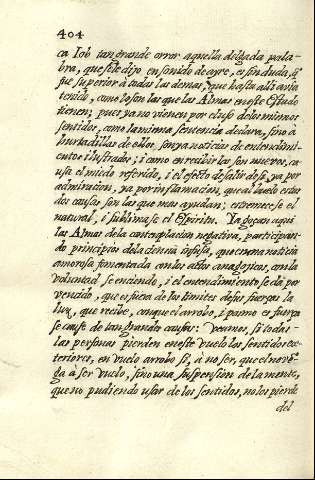 404
ca Iob tan grande orror aquella delgada pala-
bra, que se le dijo en sonido de ayre, es sin duda, q̃
fue superior à todas las demas, que hasta alli avia
tenido, como lo son las que las Almas en este Estado
tienen; pues ya no vienen por el uso de los mismos
sentidos, como la misma sentencia declara, sino à
hurtadillas de ellos, son ya noticias de entendimi-
ento e ilustrados; i como en recibirlas son nuevos, ca-
usa el miedo referido, i el efecto de salir de sì, ya por
admiracion, ya por inflamacion, que al buelo estas
dos causas son las que mas ayudan; estremecese el
natural, i sublimase el Espiritu. Ya gozan aqui
las Almas de la contemplacion negativa, participan-
do principios de la ciencia infusa, que es una noticia
amorosa fomentada con los actos anagojicos, con la
voluntad se enciende, i el entendimiento se da por
vencido, que es fuera de los limites de sus fuerças la
luz, que recibe, con que el arrobo, i pasmo es fuerça
se cause de tan grandes causas. Veamos, si todas
las personas pierden en este vuelo los sentidos ex-
teriores, en vuelo arrobo si, à no ser, que el no ve-
ga à ser vuelo, sino una suspension de la mente,
que no pudiendo usar de los sentidos, no los pierde
del